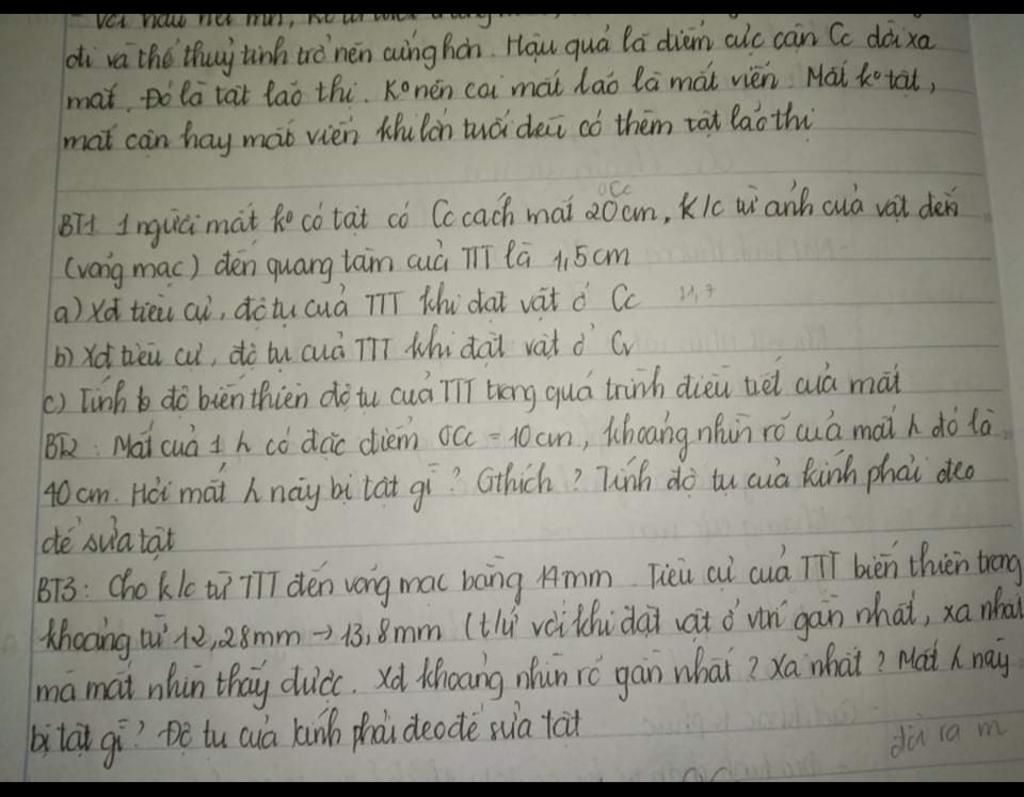 đi và thể thuỷ tinh trở nên cứng hơn. Hậu quả là điểm cực cận Cc dời xa
mắt. Đó là tật lão thị. K° nên coi mắt lão là mắt viễn. Mắt k° tật,
mắt cận hay mắt viễn khi lớn tuổi đều có thêm tật lão thị
OCc
BT1 1 người mắt k° có tật có Cc cách mắt 20cm, k/c từ ảnh của vật đến
(võng mạc) đến quang tâm của TTT là 1,5cm
a) Xđ tiêu cự, độ tụ của TTT khi đặt vật ở Cc
b) Xđ tiêu cự, độ tụ của TTT khi đặt vật ở Cv
c) Tính độ biến thiên độ tụ của TTT trong quá trình điều tiết của mắt
BT2: Mắt của 1 h có đặc điểm OCc = 10cm, khoảng nhìn rõ của mắt h đó là
40cm. Hỏi mắt h này bị tật gì? Gthích? Tính độ tụ của kính phải đeo
để sửa tật
BT3: Cho k/c từ TTT đến võng mạc bằng 14mm. Tiêu cự của TTT biến thiên trong
khoảng từ 12,28mm → 13,8mm (t/ư với khi đặt vật ở vtrí gần nhất, xa nhất
mà mắt nhìn thấy được. Xđ khoảng nhìn rõ gần nhất? Xa nhất? Mắt h này
bị tật gì? Độ tụ của kính phải đeo để sửa tật
đổi ra m